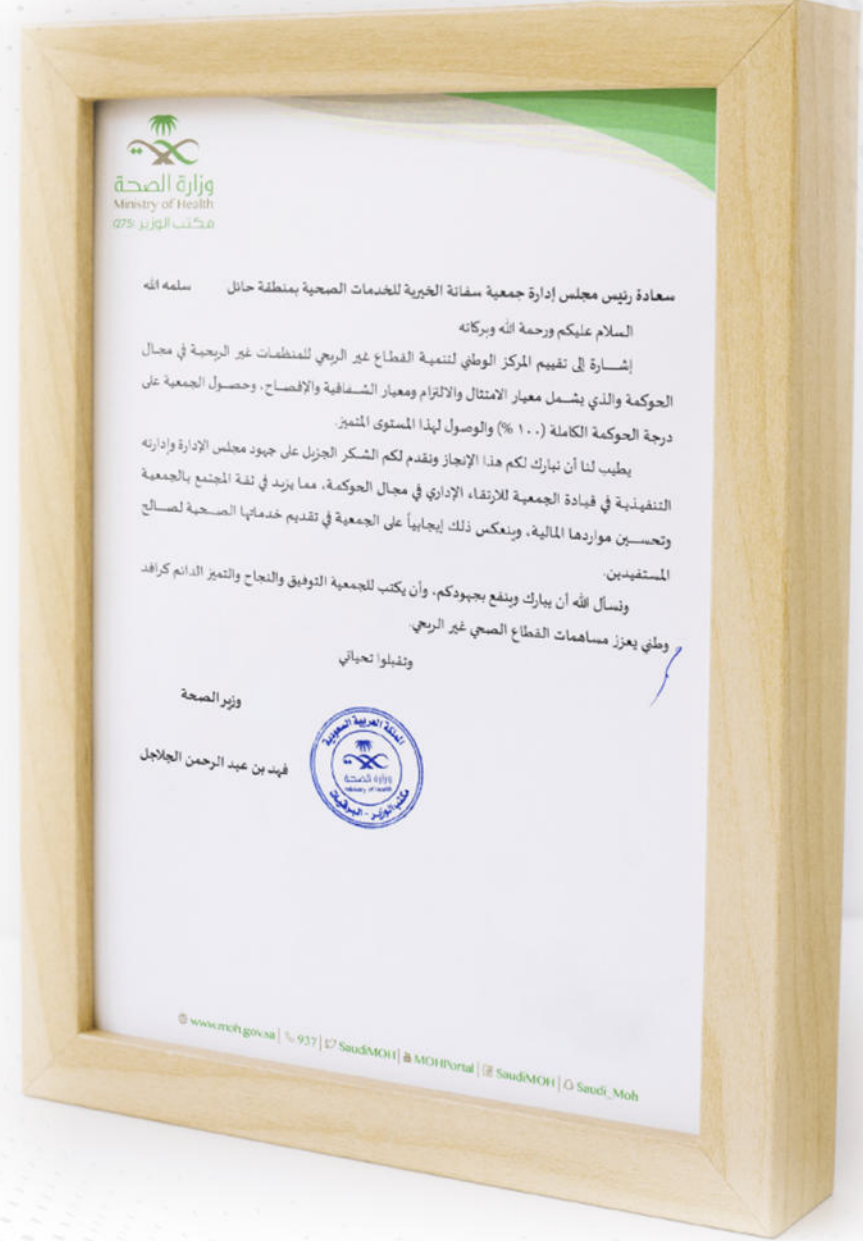 وزارة الصحة
Ministry of Health
مكتب الوزير (275)
سعادة رئيس مجلس إدارة جمعية سفانة الخيرية للخدمات الصحية بمنطقة حائل سلمه الله
السلام عليكم ورحمة الله وبركاته
إشــارة إلى تقييم المركز الوطني لتنميـة القطـاع غير الربحي للمنظمـات غير الربحيـة في مجـال
الحوكمة والذي يشــمل معيار الامتثال والالتزام ومعيار الشــفافية والإفصــاح، وحصــول الجمعية على
درجة الحوكمة الكاملة (١٠٠ %) والوصول لهذا المستوى المتميز.
يطيب لنا أن نبارك لكم هذا الإنجاز ونقدم لكم الشكر الجزيل على جهود مجلس الإدارة وإدارته
التنفيـذيـة في قيـادة الجمعيـة للارتقـاء الإداري في مجـال الحوكمـة، ممـا يزيـد في ثقـة المجتمع بـالجمعيـة
وتحســـين مواردها المالية، وينعكس ذلك إيجابياً على الجمعية في تقديم خدماتها الصـــحية لصـــالح
المستفيدين.
ونسأل الله أن يبارك وينفع بجهودكم، وأن يكتب للجمعية التوفيق والنجاح والتميز الدائم كرافد
وطني يعزز مساهمات القطاع الصحي غير الربحي.
وتقبلوا تحياتي
وزير الصحة
فهد بن عبد الرحمن الجلاجل
المملكة العربية السعودية
وزارة الصحة
Ministry of Health
مكتب الوزير - البرقيات
www.moh.gov.sa | 937 | SaudiMOH | MOHPortal | SaudiMOH | Saudi_Moh